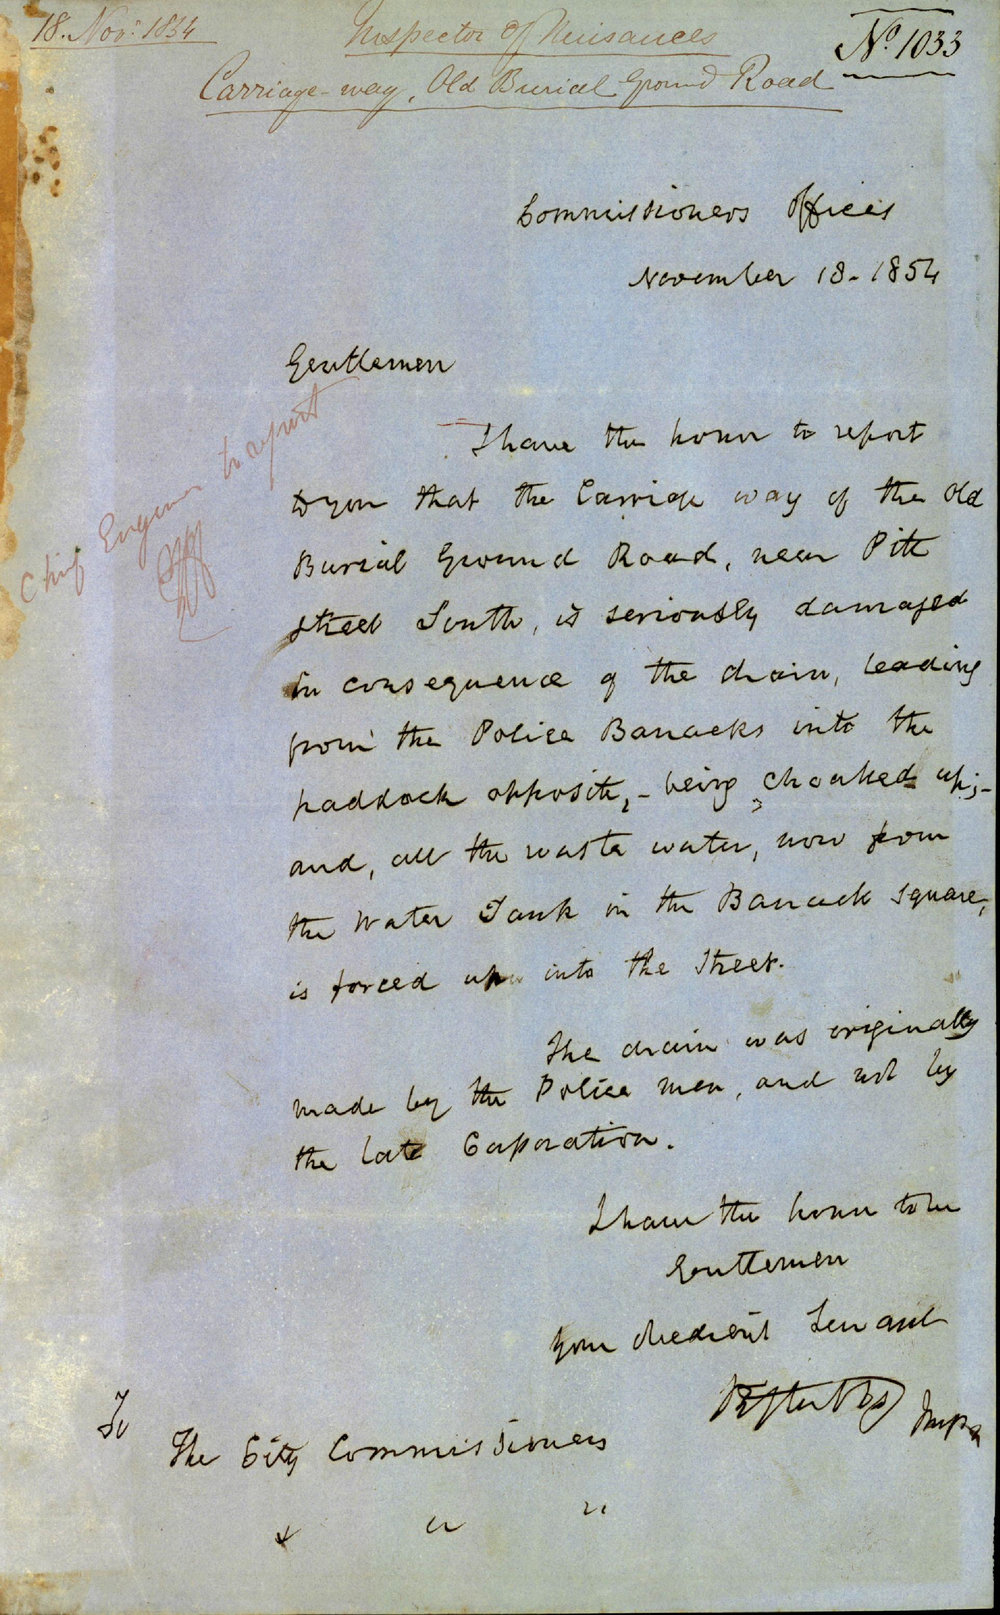 18. Nov: 1854
Inspector of Nuisances
No. 1033
Carriage-way, Old Burial Ground Road
Commissioners Offices
November 18. 1854
Gentlemen
Chief Engineer to report
I have the honor to report
to you that the Carriage way of the Old
Burial Ground Road, near Pitt
Street South, is seriously damaged
in consequence of the drain, leading
from the Police Barracks into the
paddock opposite, - being choaked up; -
and, all the waste water, now from
the Water Tank in the Barrack Square,
is forced up into the Street.
The drain was originally
made by the Police men, and not by
the late Corporation.
I have the honor to be
Gentlemen
Your obedient Servant
To
The City Commissioners
&